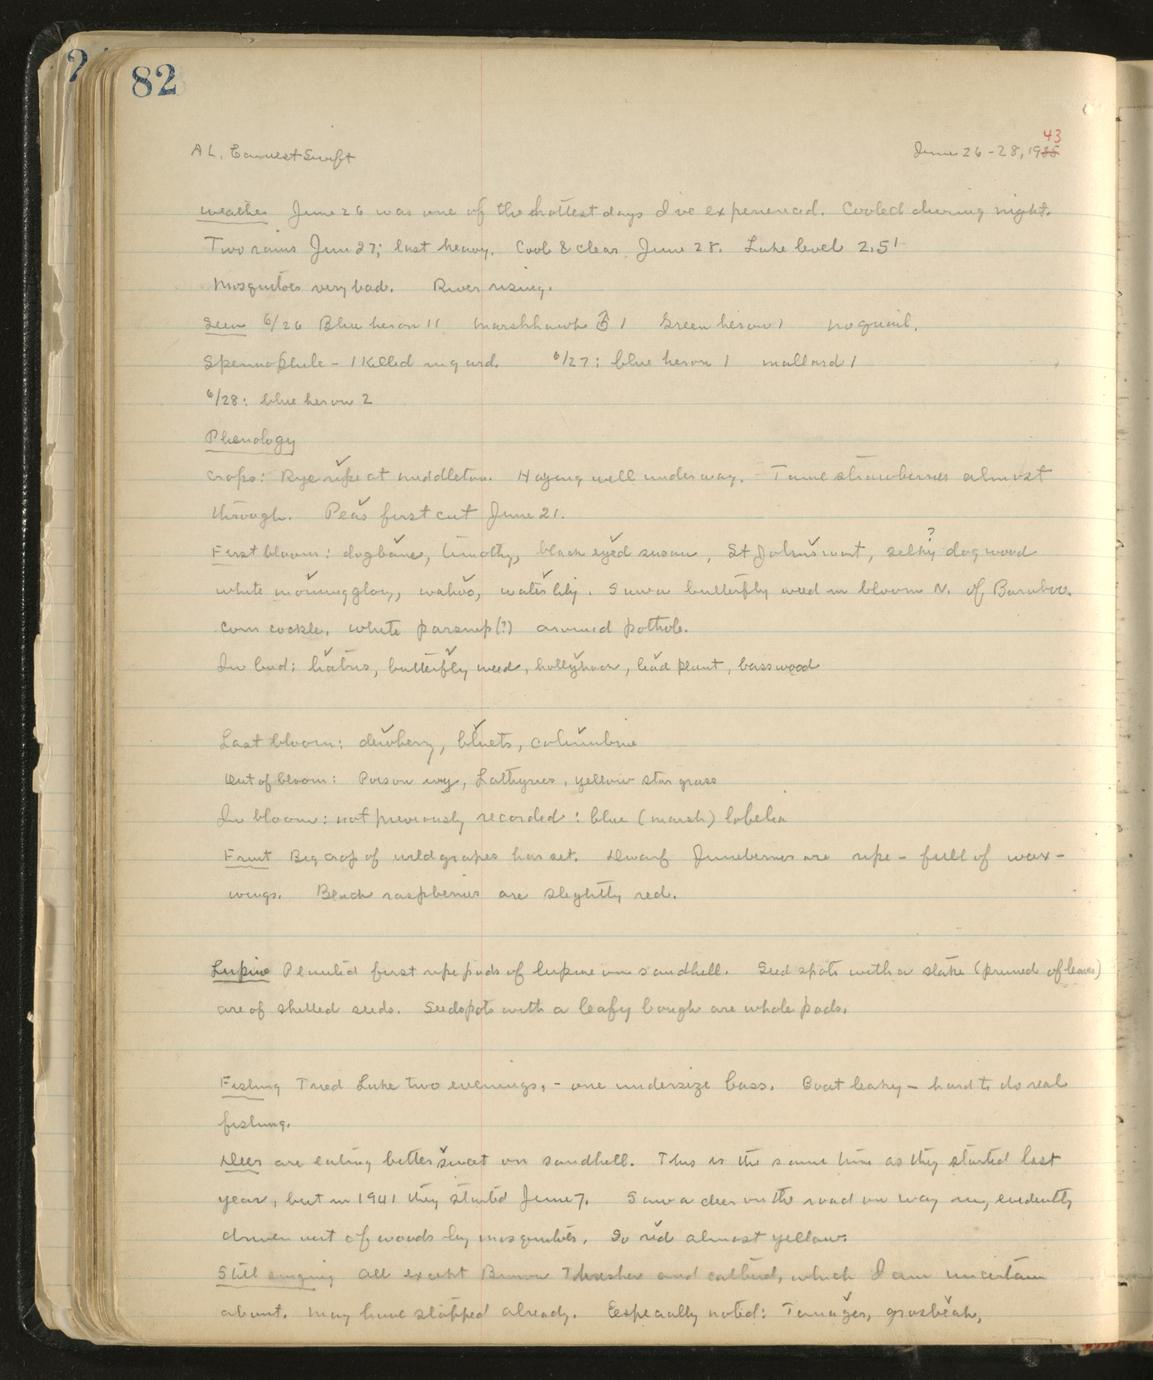 82
43
A L, Earnest Swift June 26-28, 1935
Weather June 26 was one of the hottest days I've experienced. Cooled during night.
Two rains June 27; last heavy. Cool & clear June 28. Lake level 2.5'
Mosquitoes very bad. River rising.
Seen 6/26 Blue heron 11 Marshhawk ♂ 1 Green heron 1 no quail.
Spermophile - 1 killed in yard. 6/27: blue heron 1 mallard 1
6/28: blue heron 2
Phenology
Crops: Rye ripe at Middleton. Haying well under way. Tame strawberries almost
through. Peas first cut June 21.
First bloom: dogbane, timothy, black eyed susan, St Johnswort, silky ? dogwood
white morningglory, wahoo, water lily. Saw a butterfly weed in bloom N. of Baraboo.
Corn cockle, white parsnip(?) around pothole.
In bud: liatris, butterfly weed, hollyhock, lead plant, basswood
Last bloom: dewberry, bluets, columbine
Out of bloom: Poison ivy, Lathyrus, yellow star grass
In bloom: not previously recorded: blue (marsh) lobelia
Fruit Big crop of wild grapes has set. Dwarf Juneberries are ripe - full of wax-
wings. Black raspberries are slightly red.
Lupine Planted first ripe pods of lupine on sandhill. Seed spots with a stake (pruned of leaves)
are of shelled seeds. Seedspots with a leafy bough are whole pods.
Fishing Tried Lake two evenings, - one undersize bass. Boat leaky - hard to do real
fishing.
Deer are eating bittersweet on sandhill. This is the same time as they started last
year, but in 1941 they started June 7. Saw a deer on the road on way in, evidently
driven out of woods by mosquitoes. So red almost yellow.
Still singing All except Brown Thrasher and catbird, which I am uncertain
about. May have stopped already. Especially noted: Tanager, grosbeak,